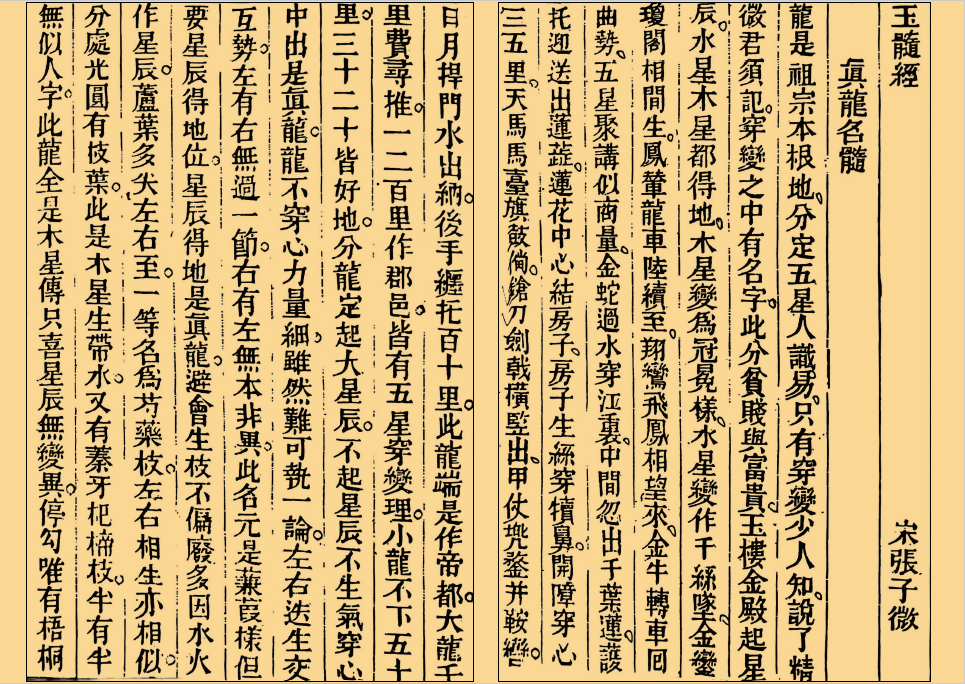 玉髓經　宋張子微
眞龍名髓
龍是祖宗本根地分定五星人識易只有穿變少人知說了精
微君須記穿變之中有名字此分貧賤與富貴玉樓金殿起星
辰水星木星都得地木星變爲冠冕樣水星變作千絲墜金變
瓊閣相間生鳳輦龍車陸續至翔鸞飛鳳相望來金牛轉車回
曲勢五星聚講似商量金蛇過水穿江裏中間忽出千葉蓮護
托迎送出蓮蕋蓮花中心結房子房子生絲穿犢鼻開障穿心
三五里天馬馬臺旗鼓 刀劍戟橫監出甲仗兠鍪并鞍
日月捍門水出納後手纒托百十里此龍端是作帝都大龍千
里費尋推一二百里作郡邑皆有五星穿變理小龍不下五十
里三十二十皆好地分龍定起大星辰不起星辰不生氣穿心
中出是眞龍龍不穿心力量細雖然難可執一論左右迭生交
互勢左有右無過一節右有左無本非異此名元是蒹葭樣但
要星辰得地位星辰得地是眞龍避會生枝不偏廢多因水火
作星辰蘆葉多尖左右至一等名爲芍藥枝左右相生亦相似
分處光圓有枝葉此是木星生帶水又有蓁牙杞 枝半有半
無似人字此龍全是木星傳只喜星辰無變異停勻唯有梧桐